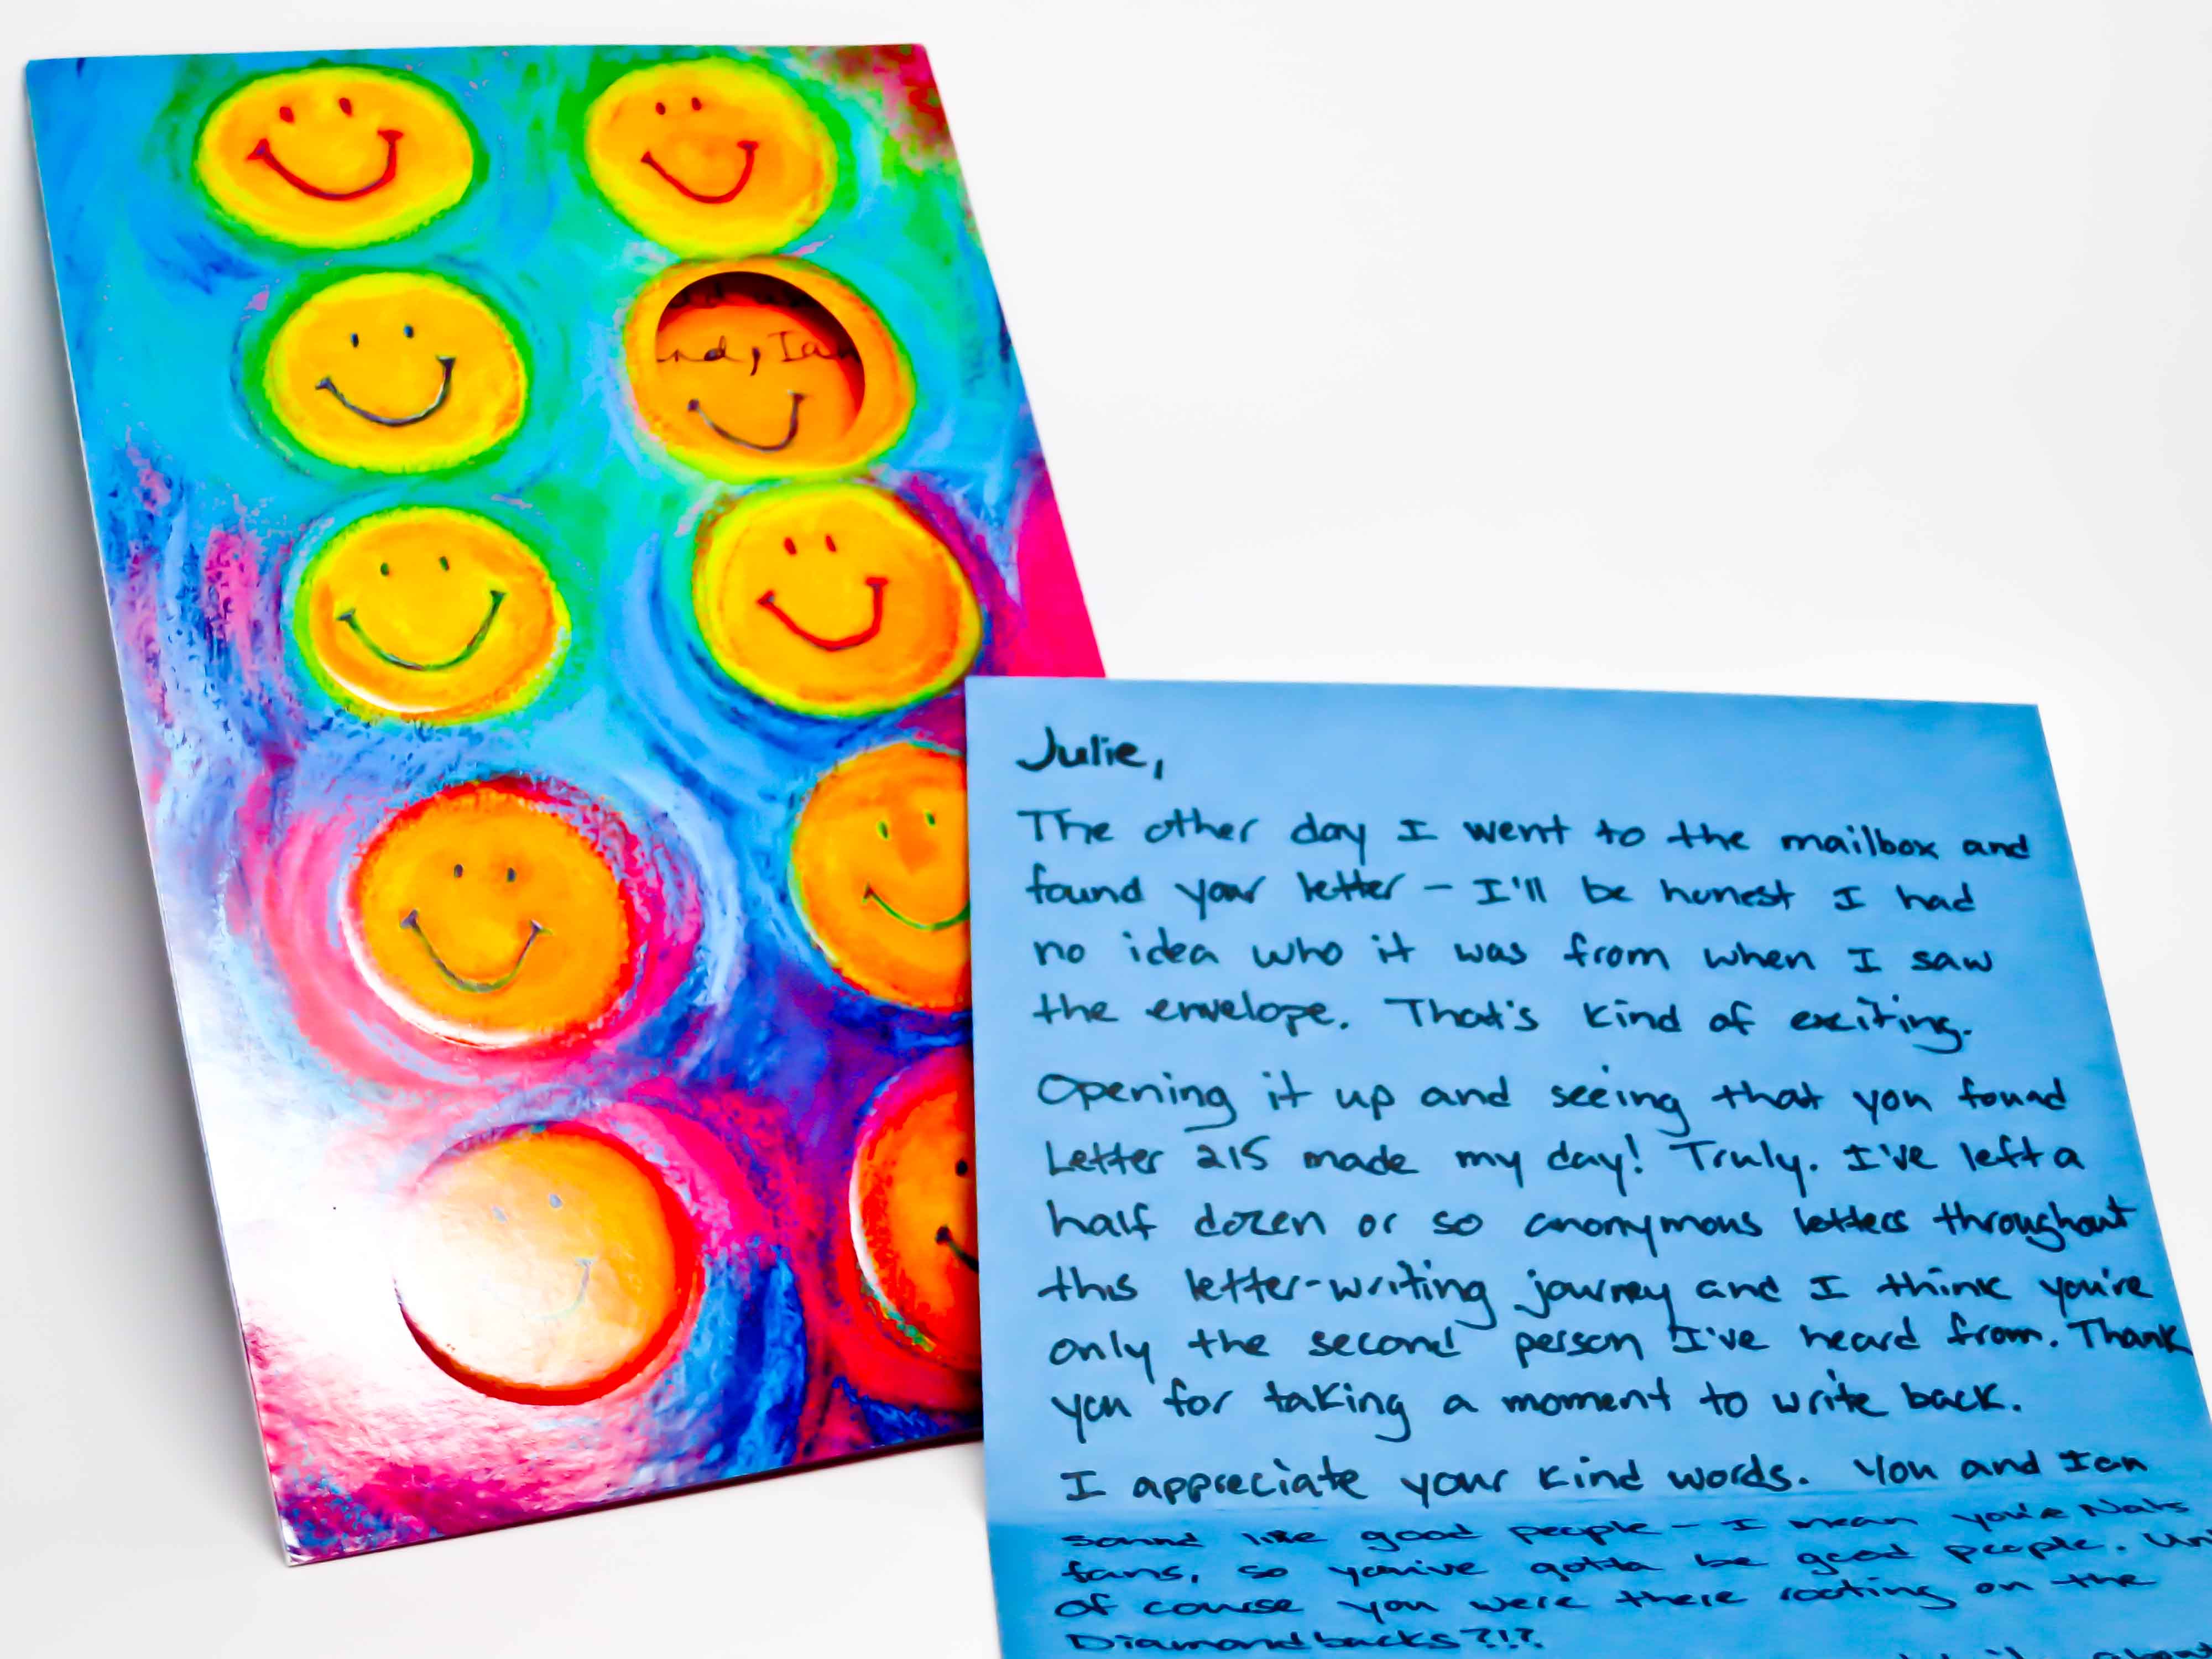 nd, Ian
Julie,
The other day I went to the mailbox and
found your letter - I'll be honest I had
no idea who it was from when I saw
the envelope. That's kind of exciting.
Opening it up and seeing that you found
Letter 215 made my day! Truly. I've left a
half dozen or so anonymous letters throughout
this letter-writing journey and I think you're
only the second person I've heard from. Thank
you for taking a moment to write back.
I appreciate your kind words. You and Ian
sound like good people - I mean you're Nats
fans, so you've gotta be good people. Un
of course you were there rooting on the
Diamondbacks?!?